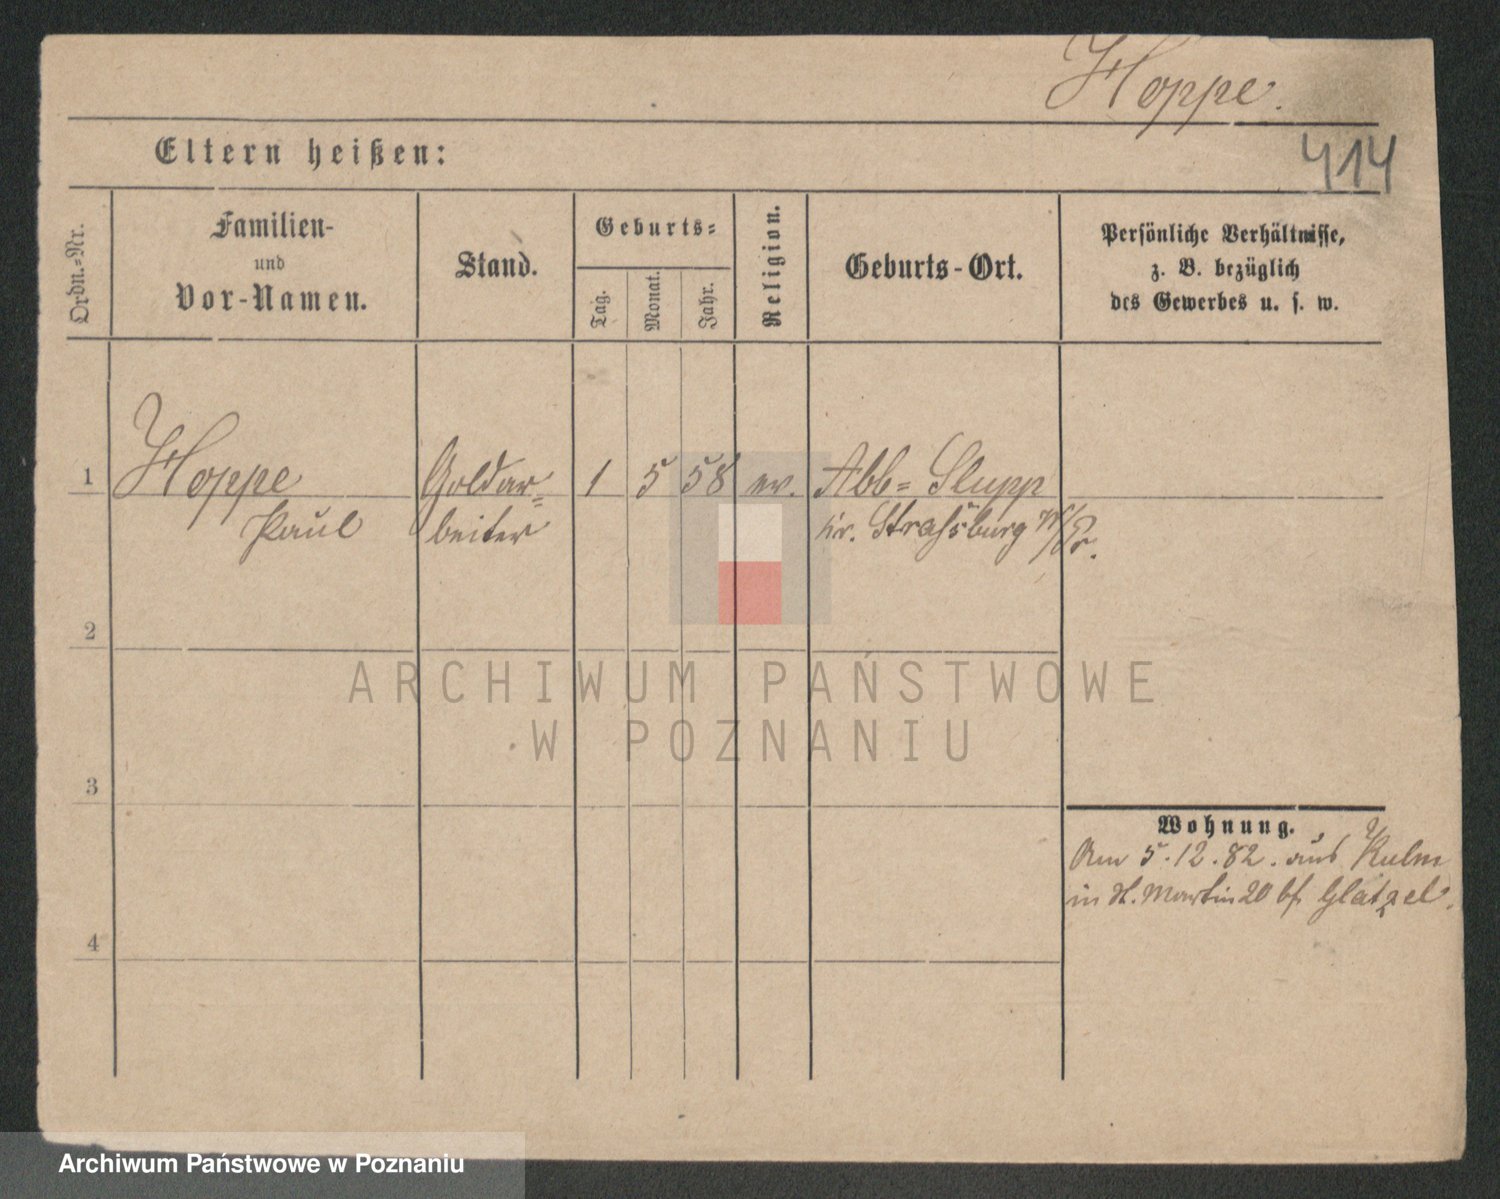 Hoppe.
414
Eltern heißen:
Ordn.-Nr.
Familien-
und
Vor-Namen.
Stand.
Geburts-
Tag.
Monat.
Jahr.
Religion.
Geburts-Ort.
Persönliche Verhältnisse,
z. B. bezüglich
des Gewerbes u. s. w.
1 Hoppe Goldar= 1 5 58 ev. Abb= Slupp
Paul beiter Kr. Straßburg W/Pr.
2
ARCHIWUM PAŃSTWOWE
W POZNANIU
3
Wohnung.
Am 5.12.82. aus Kulm
in St. Martin 20 bf Glatzel.
4
Archiwum Państwowe w Poznaniu